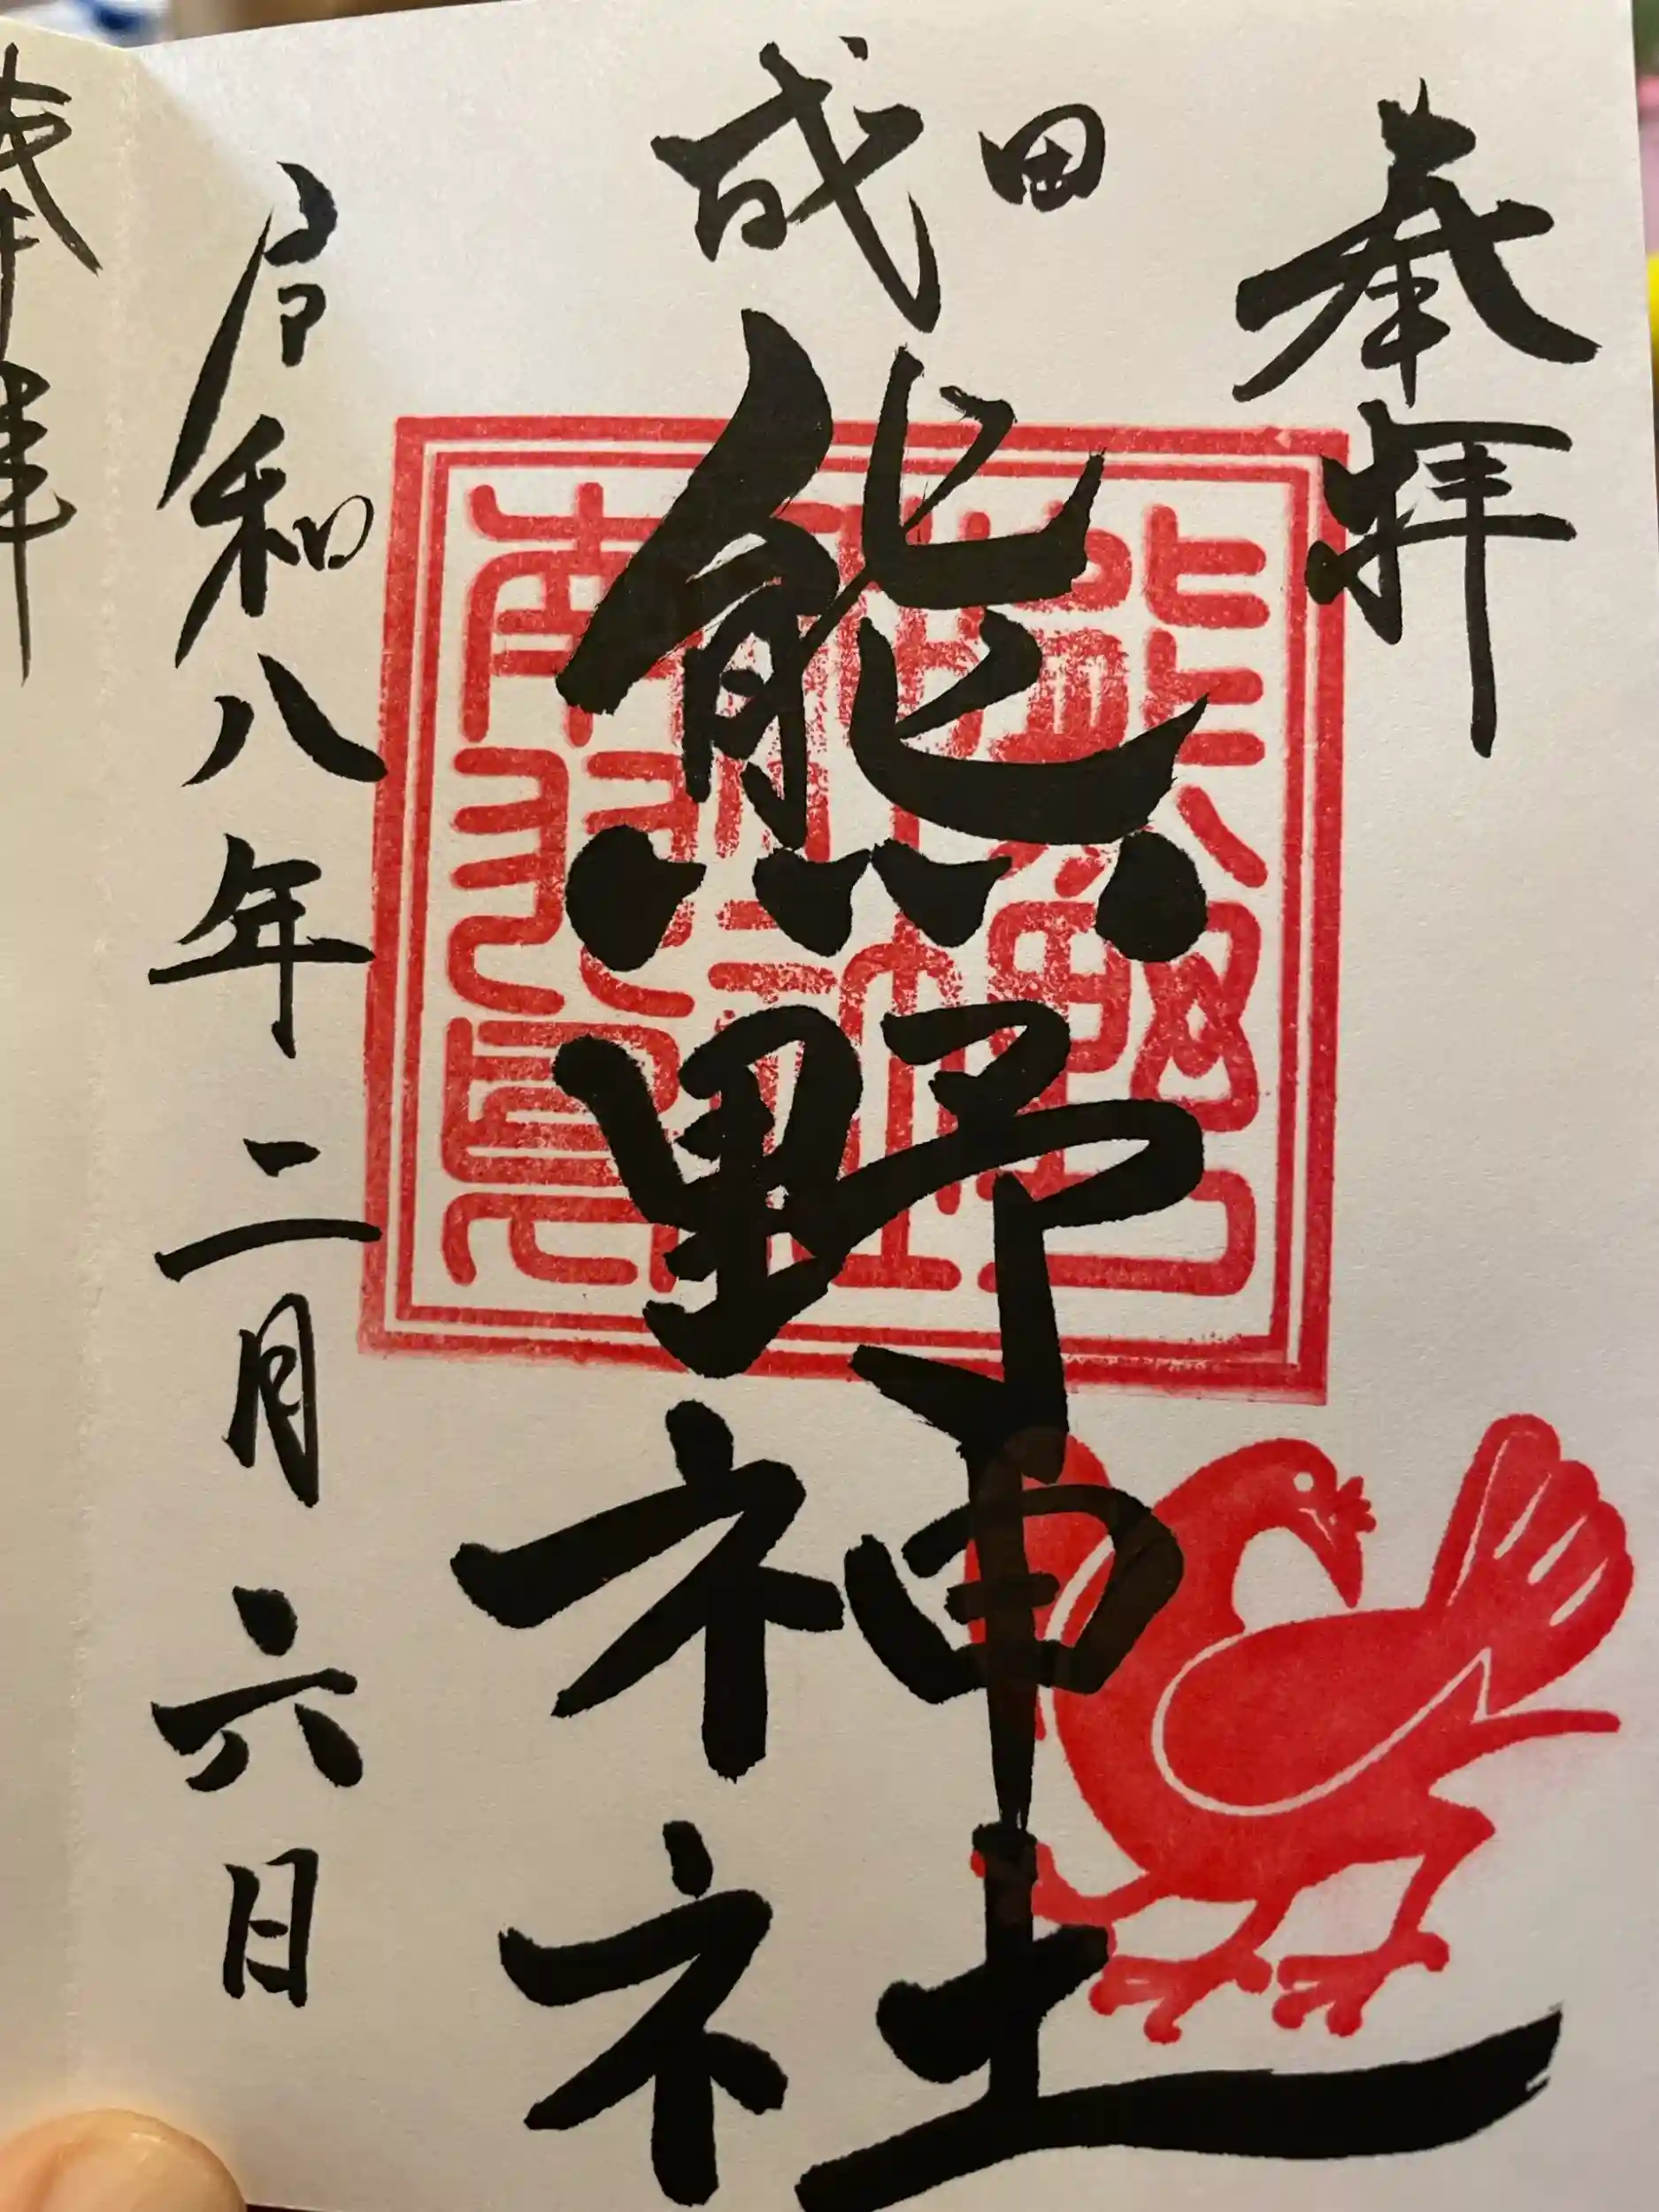 奉拝
成田
熊野神社
熊野
神社
南羽鳥
令和八年二月六日
奉拝